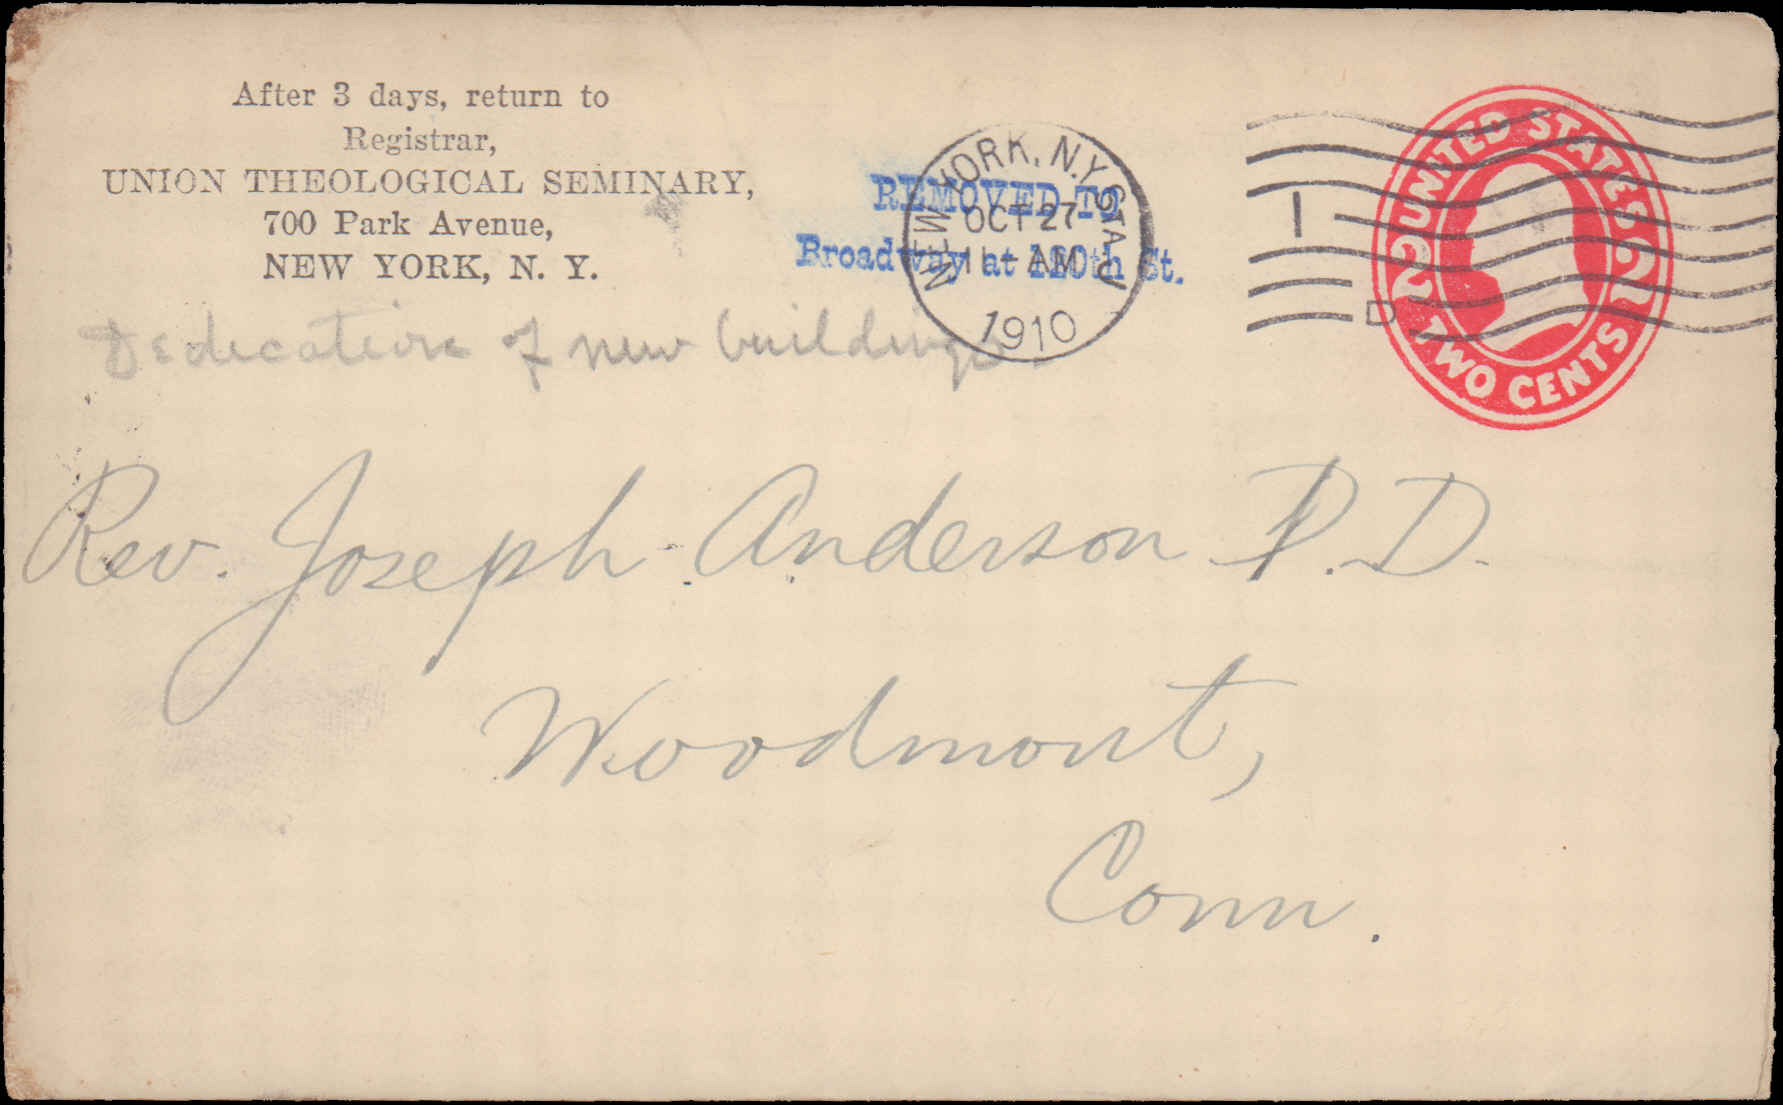 After 3 days, return to
Registrar,
UNION THEOLOGICAL SEMINARY,
700 Park Avenue,
NEW YORK, N. Y.
REMOVED TO
Broadway at 120th St.
NEW YORK, N.Y. STA.
OCT 27
AM
1910
1
D
UNITED STATES
2 2
TWO CENTS
Dedication of new buildings
Rev. Joseph Anderson D.D.
Woodmont,
Conn.